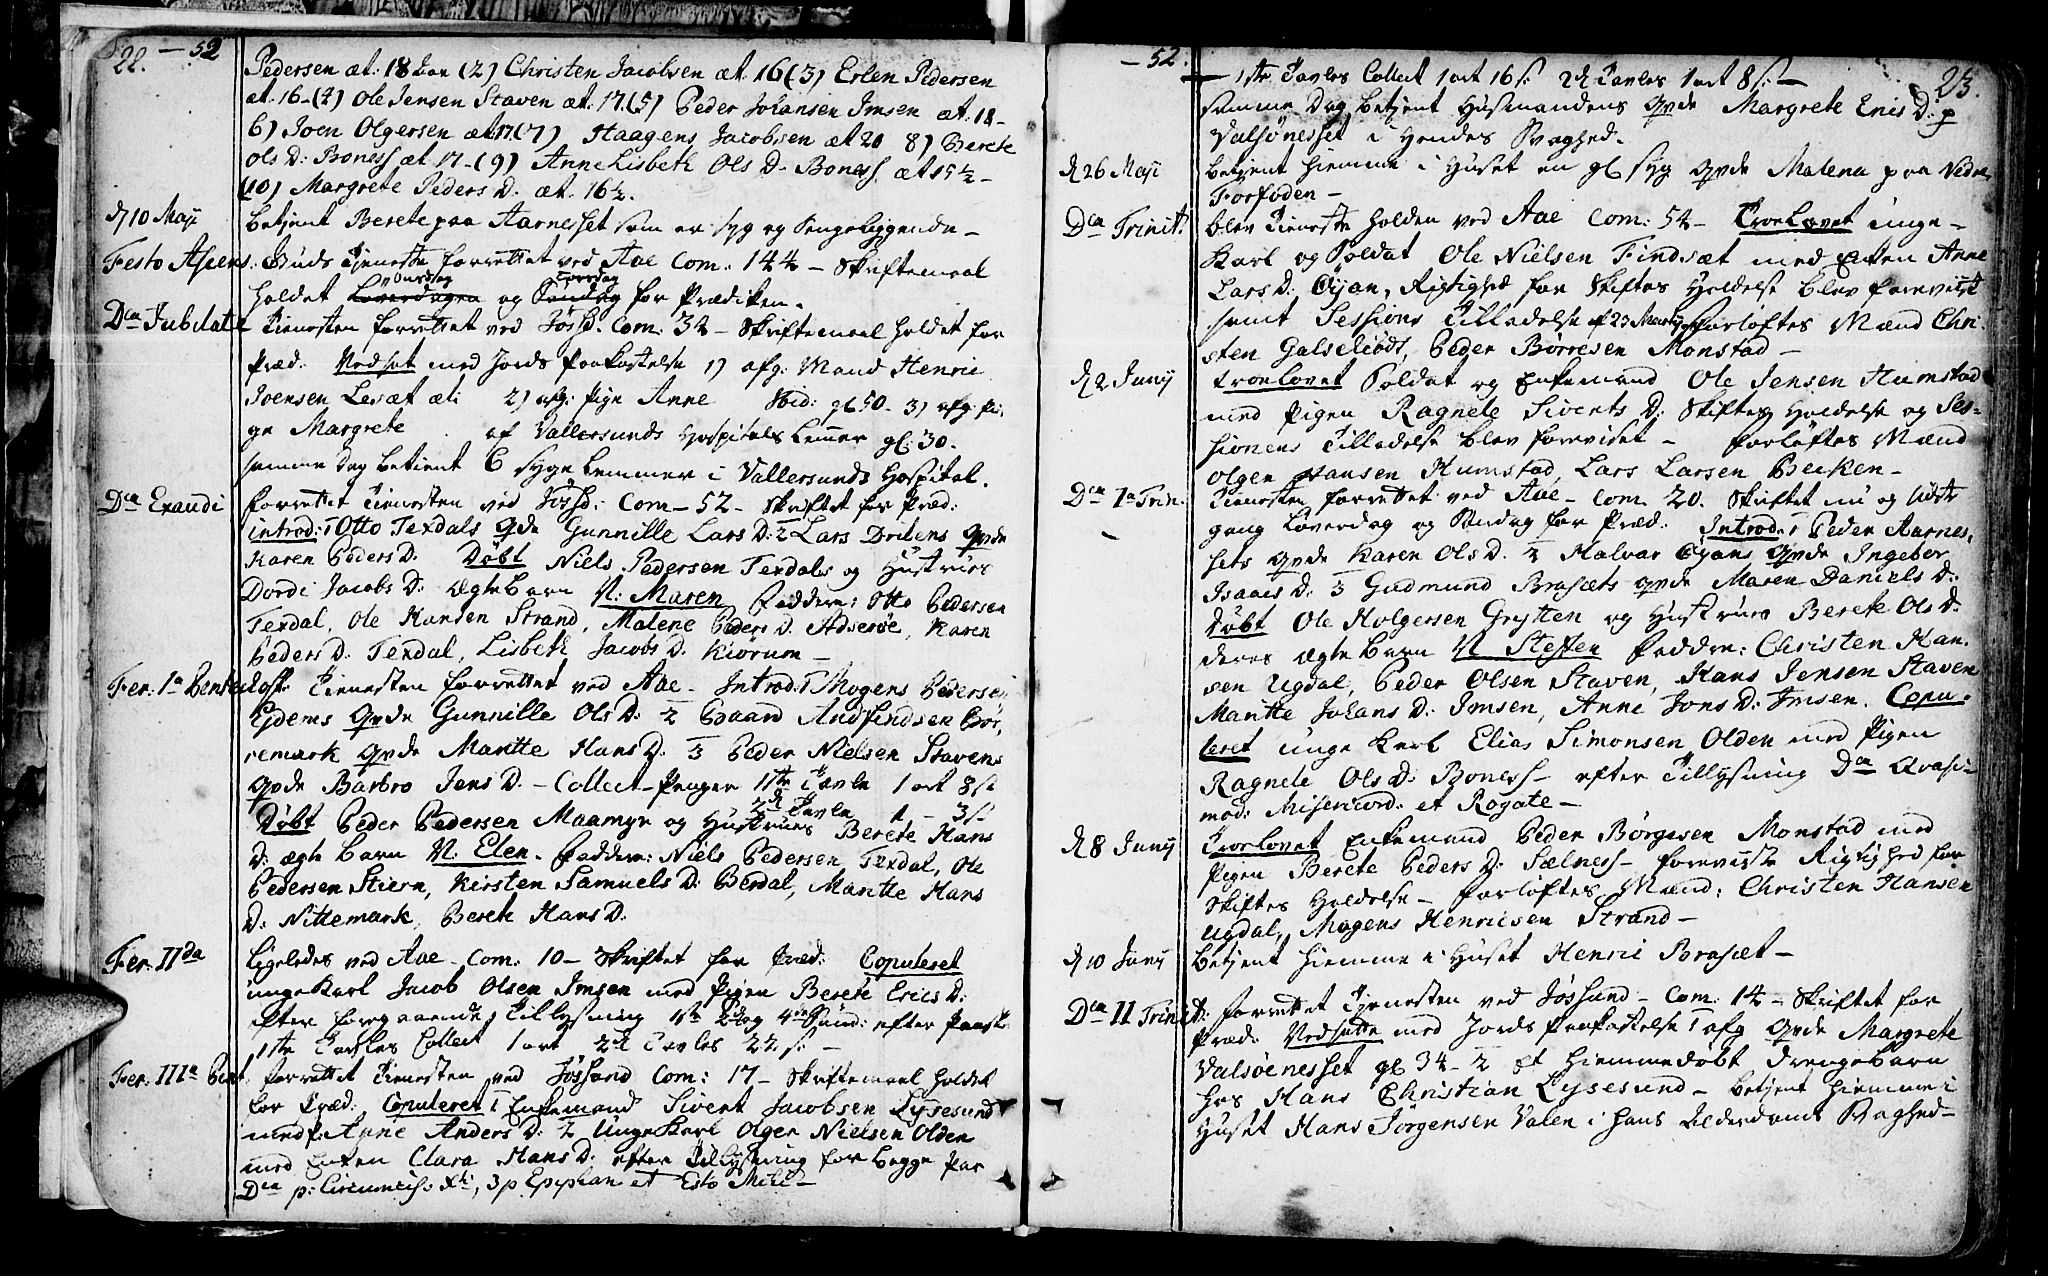 22. — 52
Pedersen æt: 18 Aar (2) Christen Jacobsen æt. 16 (3) Erlen Pedersen
æt. 16 – (4) Ole Jensen Staven æt. 17. (5) Peder Johansen Imsen æt. 18 –
6) Joen Olgersen æt 17. (7) Haagens Jacobsen æt 20 8) Berete
Ols D: Boness æt 17 – (9) Anne Lisbeth Ols D – Boness. æt 15 ½ –
(10) Margrete Peders D. æt. 16 ½.
d 10 Maji betjent Berete paa Aarnesset som er syg og Sengeliggende –
Festo Ascens. Guds Tjeneste forrettet ved Aae Com: 144 – Skriftemaal
holdet Løverdagen og Torsdag for Prædiken.
Dca Jubilate Tienesten forrettet ved Jøss. Com: 34 – Skriftemaal holdet for
Præd. Vedset med Jords Paakastelse 1) afg: Mand Henric
Joensen Lesæt æt: 2) afg: Pige Anne Ibid: gl 50. 3) afg: Pi-
ge Margrete af Vallersunds Hospitals Lemmer gl: 30.
samme dag betient 6 syge Lemmer i Vallersunds Hospital.
Dca Exaudi forrettet Tienesten ved Jøss: Com – 52 – Skriftet for Præd:
introd: 1 Otto Texdals Qvde Gunnille Lars D: 2 Lars Drilens Qvde
Karen Peders D. Døbt Niels Pedersen Texdals og Hustrues
Dordi Jacobs D: ægte Barn N: Maren Faddere: Otto Pedersen
Texdal, Ole Hansen Strand, Malene Peders D. Adserøe, Karen
Peders D: Texdal, Lisbeth Jacobs D. Kiorum –
Fer: 1a Pentecost: Tienesten forrettet ved Aae – Introd: 1 Mogens Pedersen
Eidems Qvde Gunnille Ols D: 2 Paard Andfindsen Bør,
remark Qvde Mantte Hans D: 3 Peder Nielsen Stavens
Qvde Barbro Jens D. – Collect-Penger 1ste Tavle 1 ort 8 s
2d Tavle 1 – 3 s
Døbt Peder Pedersen Maamyr og Hustrues Berete Hans
D: ægte Barn N. Elen. Faddere: Niels Pedersen Texdal, Ole
Pedersen Stiern, Kirsten Samuels D: Berdal, Mantte Hans
D: Nittemark, Berete Hans D.
Fer: IIda Ligeledes ved Aae – Com: 10 – Skriftet for Præd: Copuleret
unge Karl Jacob Olsen Imsen med Pigen Berete Erics D:
efter foregaaende Tillysning 1ste 2d og 4de Sønd: efter Paaske
1ste Tavles Collect 1 ort 2d Tavles 22 s: –
Fer: IIIa Pent. forrettet Tienesten ved Jøssund Com: 17 – Skriftemaal holdet
for Præd: Copuleret 1 Enkemand Sivert Jacobsen Lysesund
med P: Anne Anders D: 2 Unge Karl Olger Nielsen Olden
med Enken Clara Hans D: efter Tillysning for begge Par
Dca p: Circumcis: Xti, 3 p Epiphan et Esto Mihi –
– 52. 23.
– 1ste Tavles Collect 1 ort 16 s: 2d Tavles 1 ort 8 s: –
samme Dag betjent Husmandens Qvde Margrete Erics D: p
Valsønesset i Hendes Svaghed.
d 26 Maji betjent hiemme i Huset en gl syg Qvde Malena paa Nedre
Forfoden –
Dca Trinit: blev Tieneste holden ved Aae Com: 54 – Troelovet unge
Karl og Soldat Ole Nielsen Findsæt med Enken Anne
Lars D: Øyan, Rigtighed for Skiftes Holdelse blev foreviist
samt Sessions Tilladelse af 23 Martij Forløftes Mænd Chri-
sten Galschiødt, Peder Børresen Monstad –
d 2 Junij troelovet Soldat og Enkemand Ole Jensen Humstad
med Pigen Ragnele Siverts D: Skiftes Holdelse og Ses-
sionens Tilladelse blev foreviset – Forløftes Mænd
Olger Hansen Humstad, Lars Larsen Becken –
Dca 1a Trin. Tienesten forrettet ved Aae – Com. 20. Skriftet nu og sidste
gang Løverdag og Søndag for Præd: Introd: 1 Peder Aarnes,
sets Qvde Karen Ols D. 2 Halvar Øyans Qvde Ingebor
Isaacs D: 3 Gudmund Brasæts Qvde Maren Daniels D:
Døbt Ole Holgersen Grytten og Hustrues Berete Ols D:
deres ægte Barn N Steffen Faddere: Christen Han-
sen Ugdal, Peder Olsen Staven, Hans Jensen Staven
Mantte Johans D: Imsen, Anne Jons D: Imsen. Copu-
leret unge Karl Elias Simonsen Olden med Pigen
Ragnele Ols D: Boness – efter Tillysning Dca Qvasi-
mod: Misericord: et Rogate –
d 8 Junij Troelovet Enkemand Peder Børgesen Monstad med
Pigen Berete Peders D: Sælness – foreviiste Rigtighed for
Skiftes Holdelse – Forløftes Mænd: Christen Hansen
Ugdal, Mogens Henricsen Strand –
d 10 Junij betjent hiemme i Huset Henric Brasæt –
Dca II Trinit: forrettet Tjenesten ved Jøssund – Com: 14 – Skriftet for
Præd: Vedsatte med Jords Paakastelse 1 afg Qvde Margrete
Valsøenesset gl 34 – 2 et hiemmedøbt Drengebarn
hos Hans Christian Lysesund – betjent hiemme i
Huset Hans Jørgensen Valen i hans Alderdoms Svaghed –